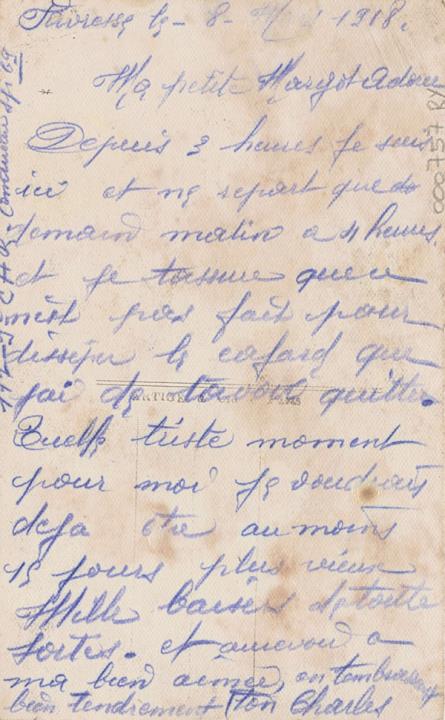 le 8 1918.
Ma petite Margot Adoré
Depuis 2 heures je suis
ici et ne repart que de
demain matin a 4 heures
et je tassure que ce
nest pas fait pour
dissiper le cafard que
jai de tavoir quitter.
Quelle triste moment
pour moi je voudrais
deja être au moins
15 jours plus vieux
Mille baisers de toute
sortes. et aurevoir a
ma bien aimée, en tembrassant
bien tendrement ton Charles